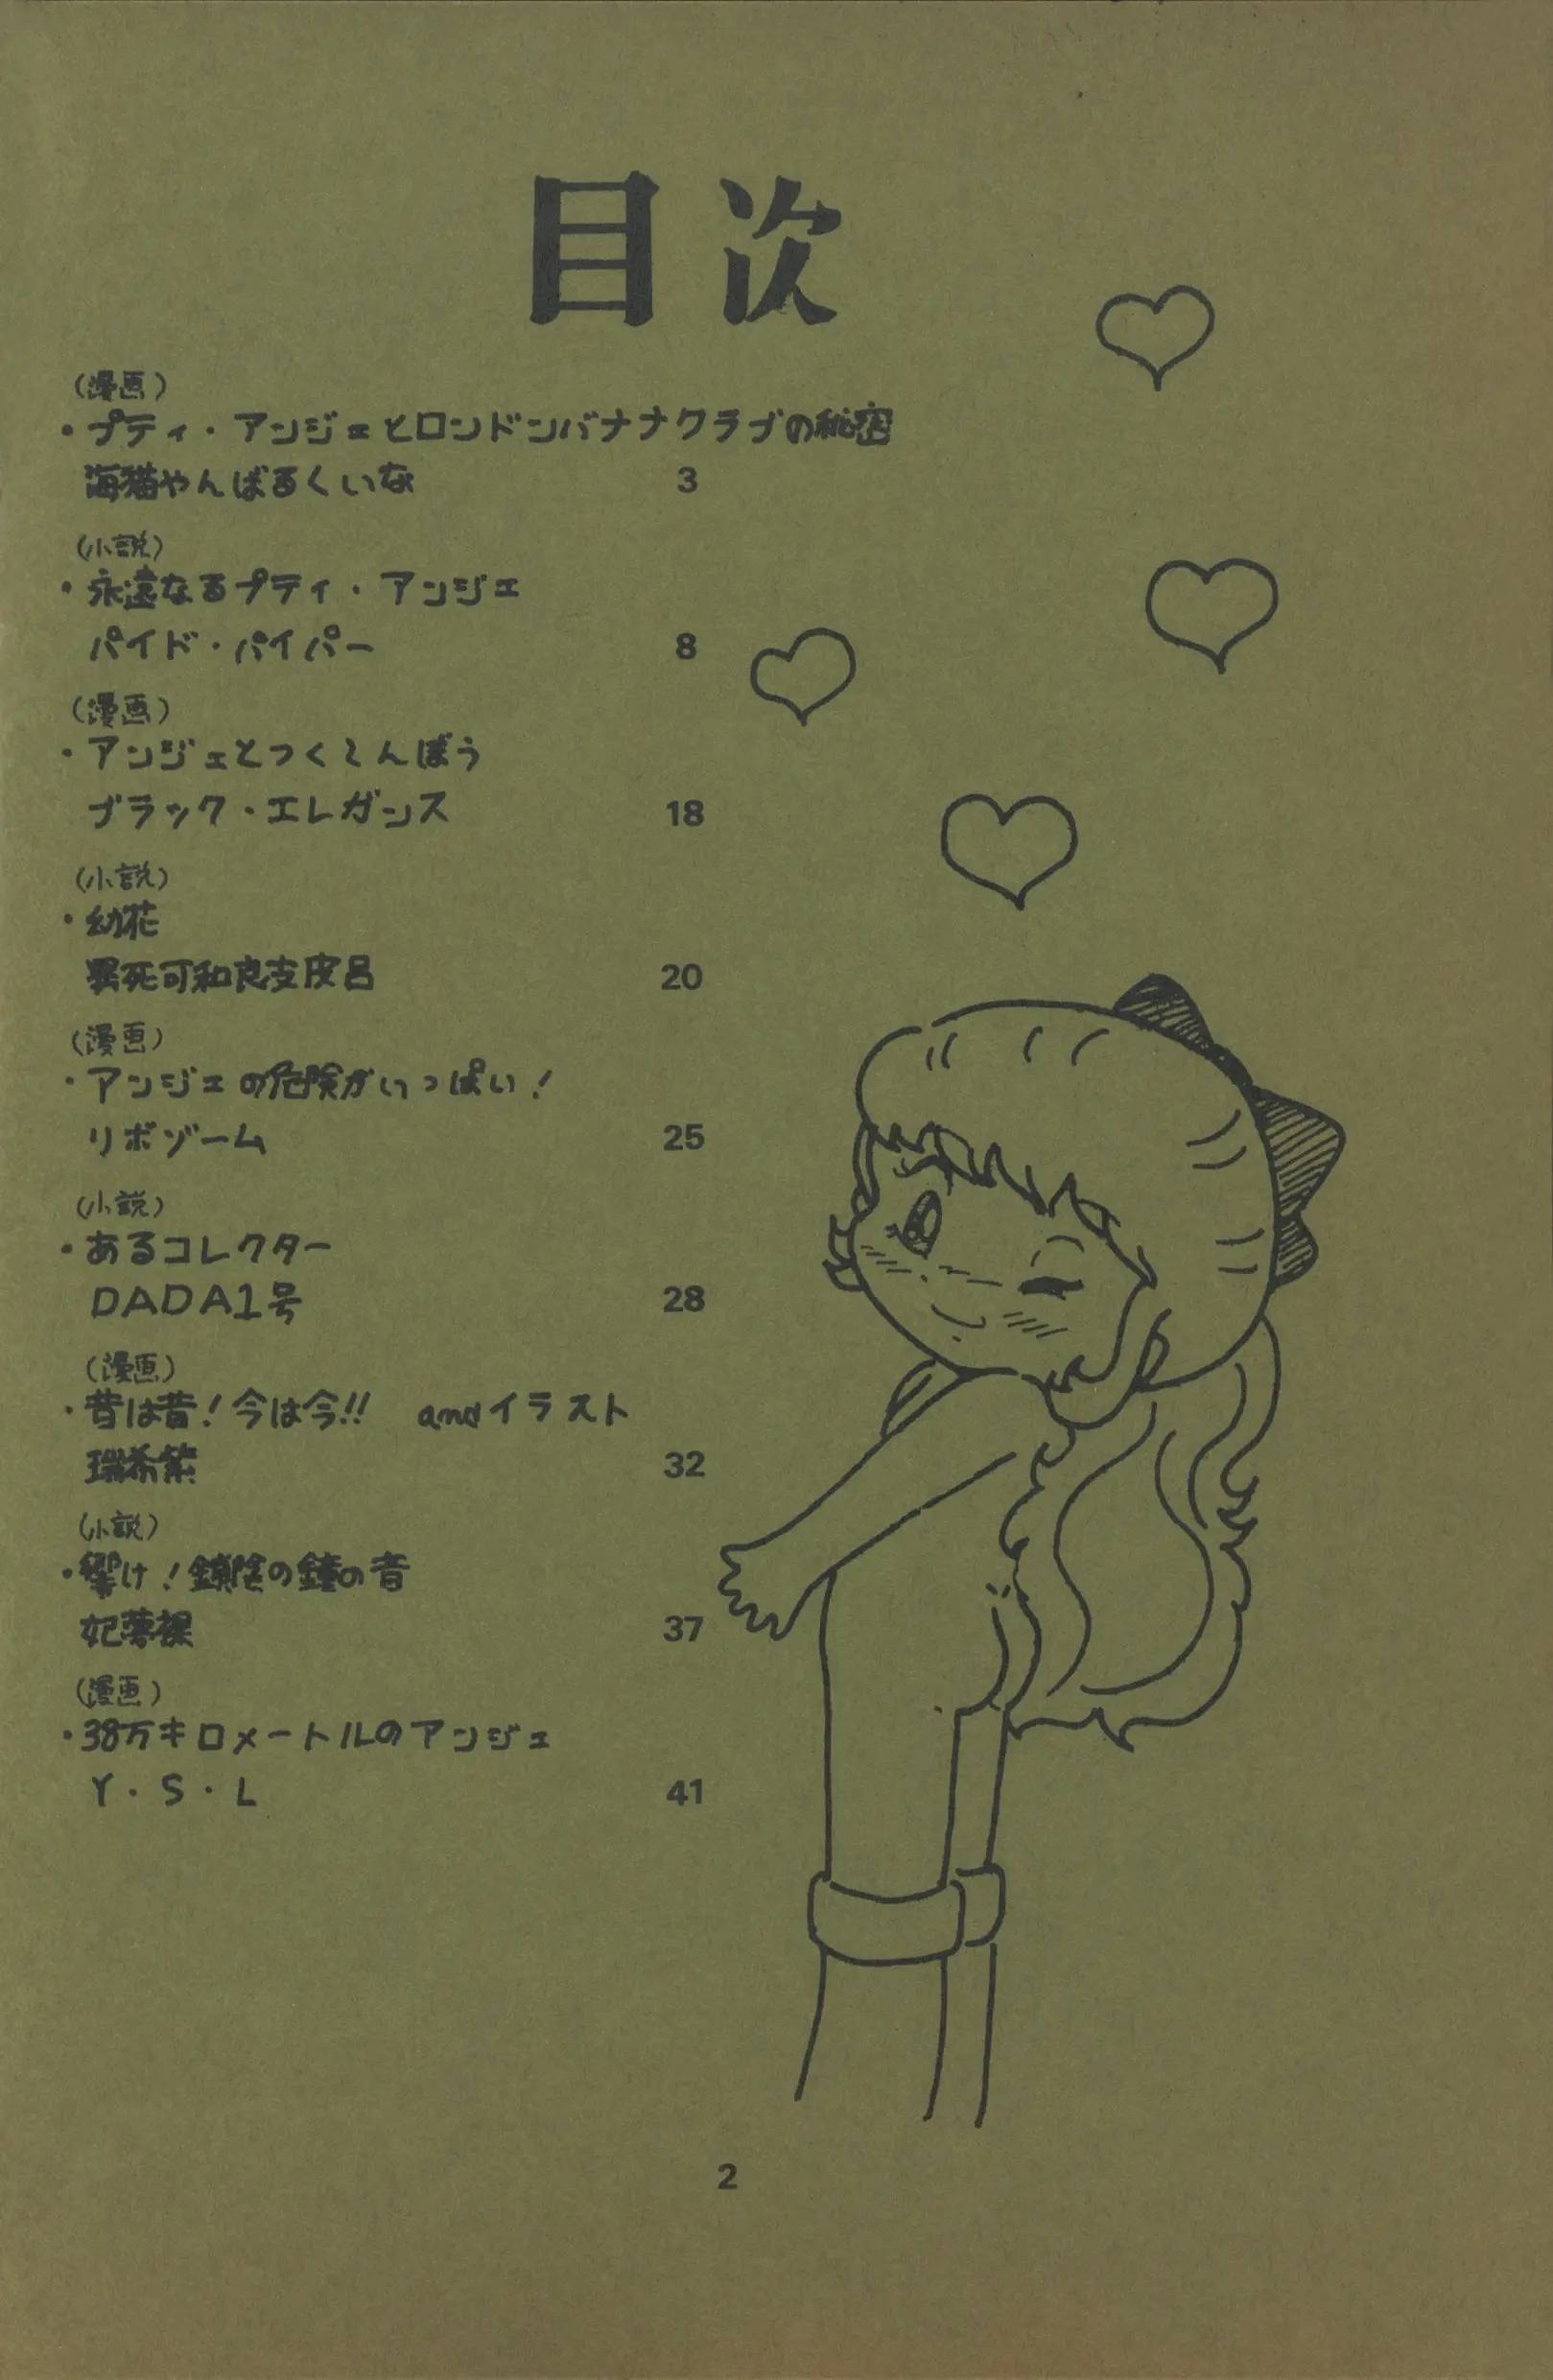 目次
（漫画）
・プティ・アンジェとロンドンバナナクラブの秘密
海猫やんばるくいな 3
（小説）
・永遠なるプティ・アンジェ
パイド・パイパー 8
（漫画）
・アンジェとつくしんぼう
ブラック・エレガンス 18
（小説）
・幼花
死可和良支皮呂 20
（漫画）
・アンジェの危険がいっぱい！
リボゾーム 25
（小説）
・あるコレクター
DADA1号 28
（漫画）
・昔は昔！今は今!! andイラスト
瑞希紫 32
（小説）
・響け！鎮陰の鐘の音
妃夢裸 37
（漫画）
・38万キロメートルのアンジェ
Y・S・L 41
2